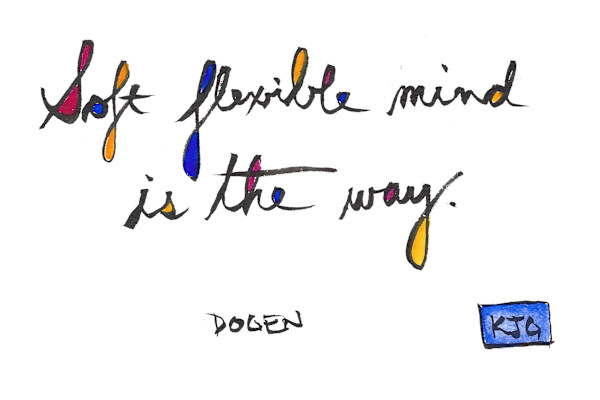 Soft flexible mind
is the way.
DOGEN
KJG